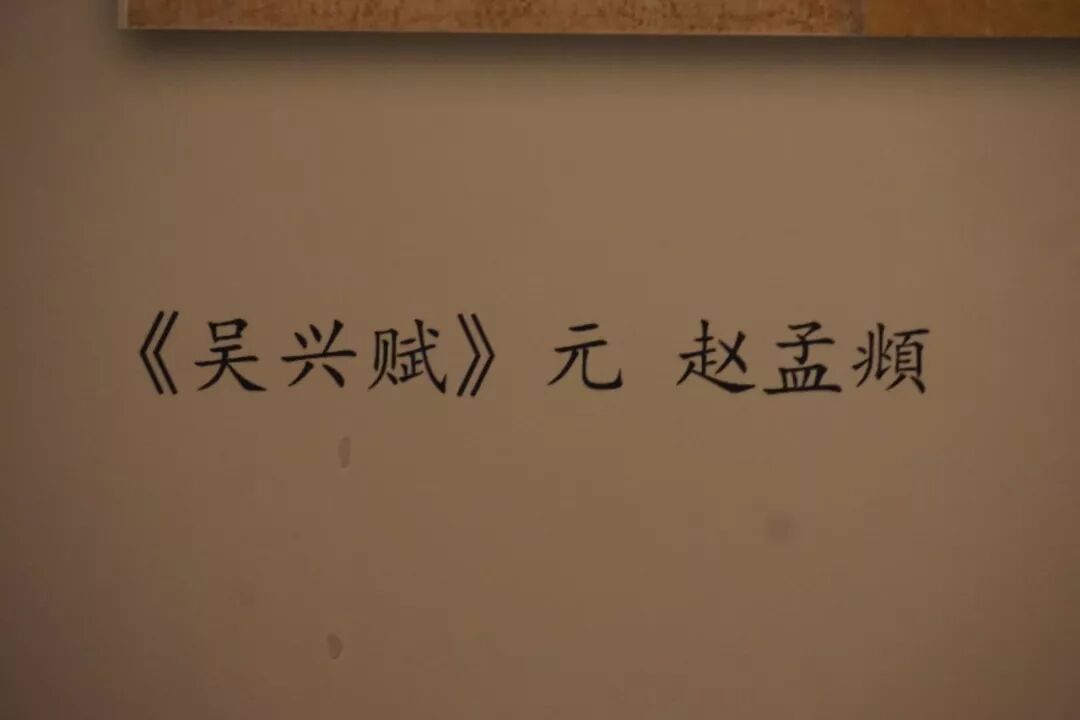 《吴兴赋》元 赵孟頫